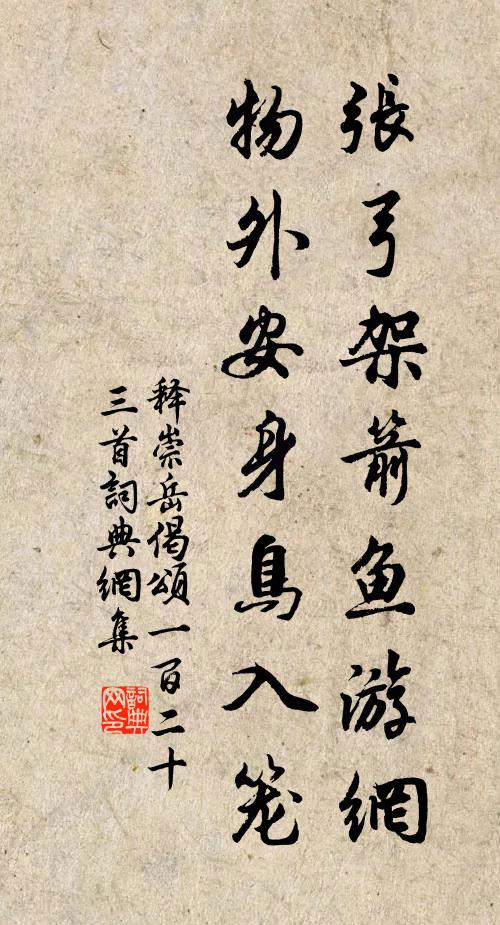 張弓架箭魚游網
物外安身鳥入笼
释崇岳偈頌一百二十
三首詞典網集
詞典
网印